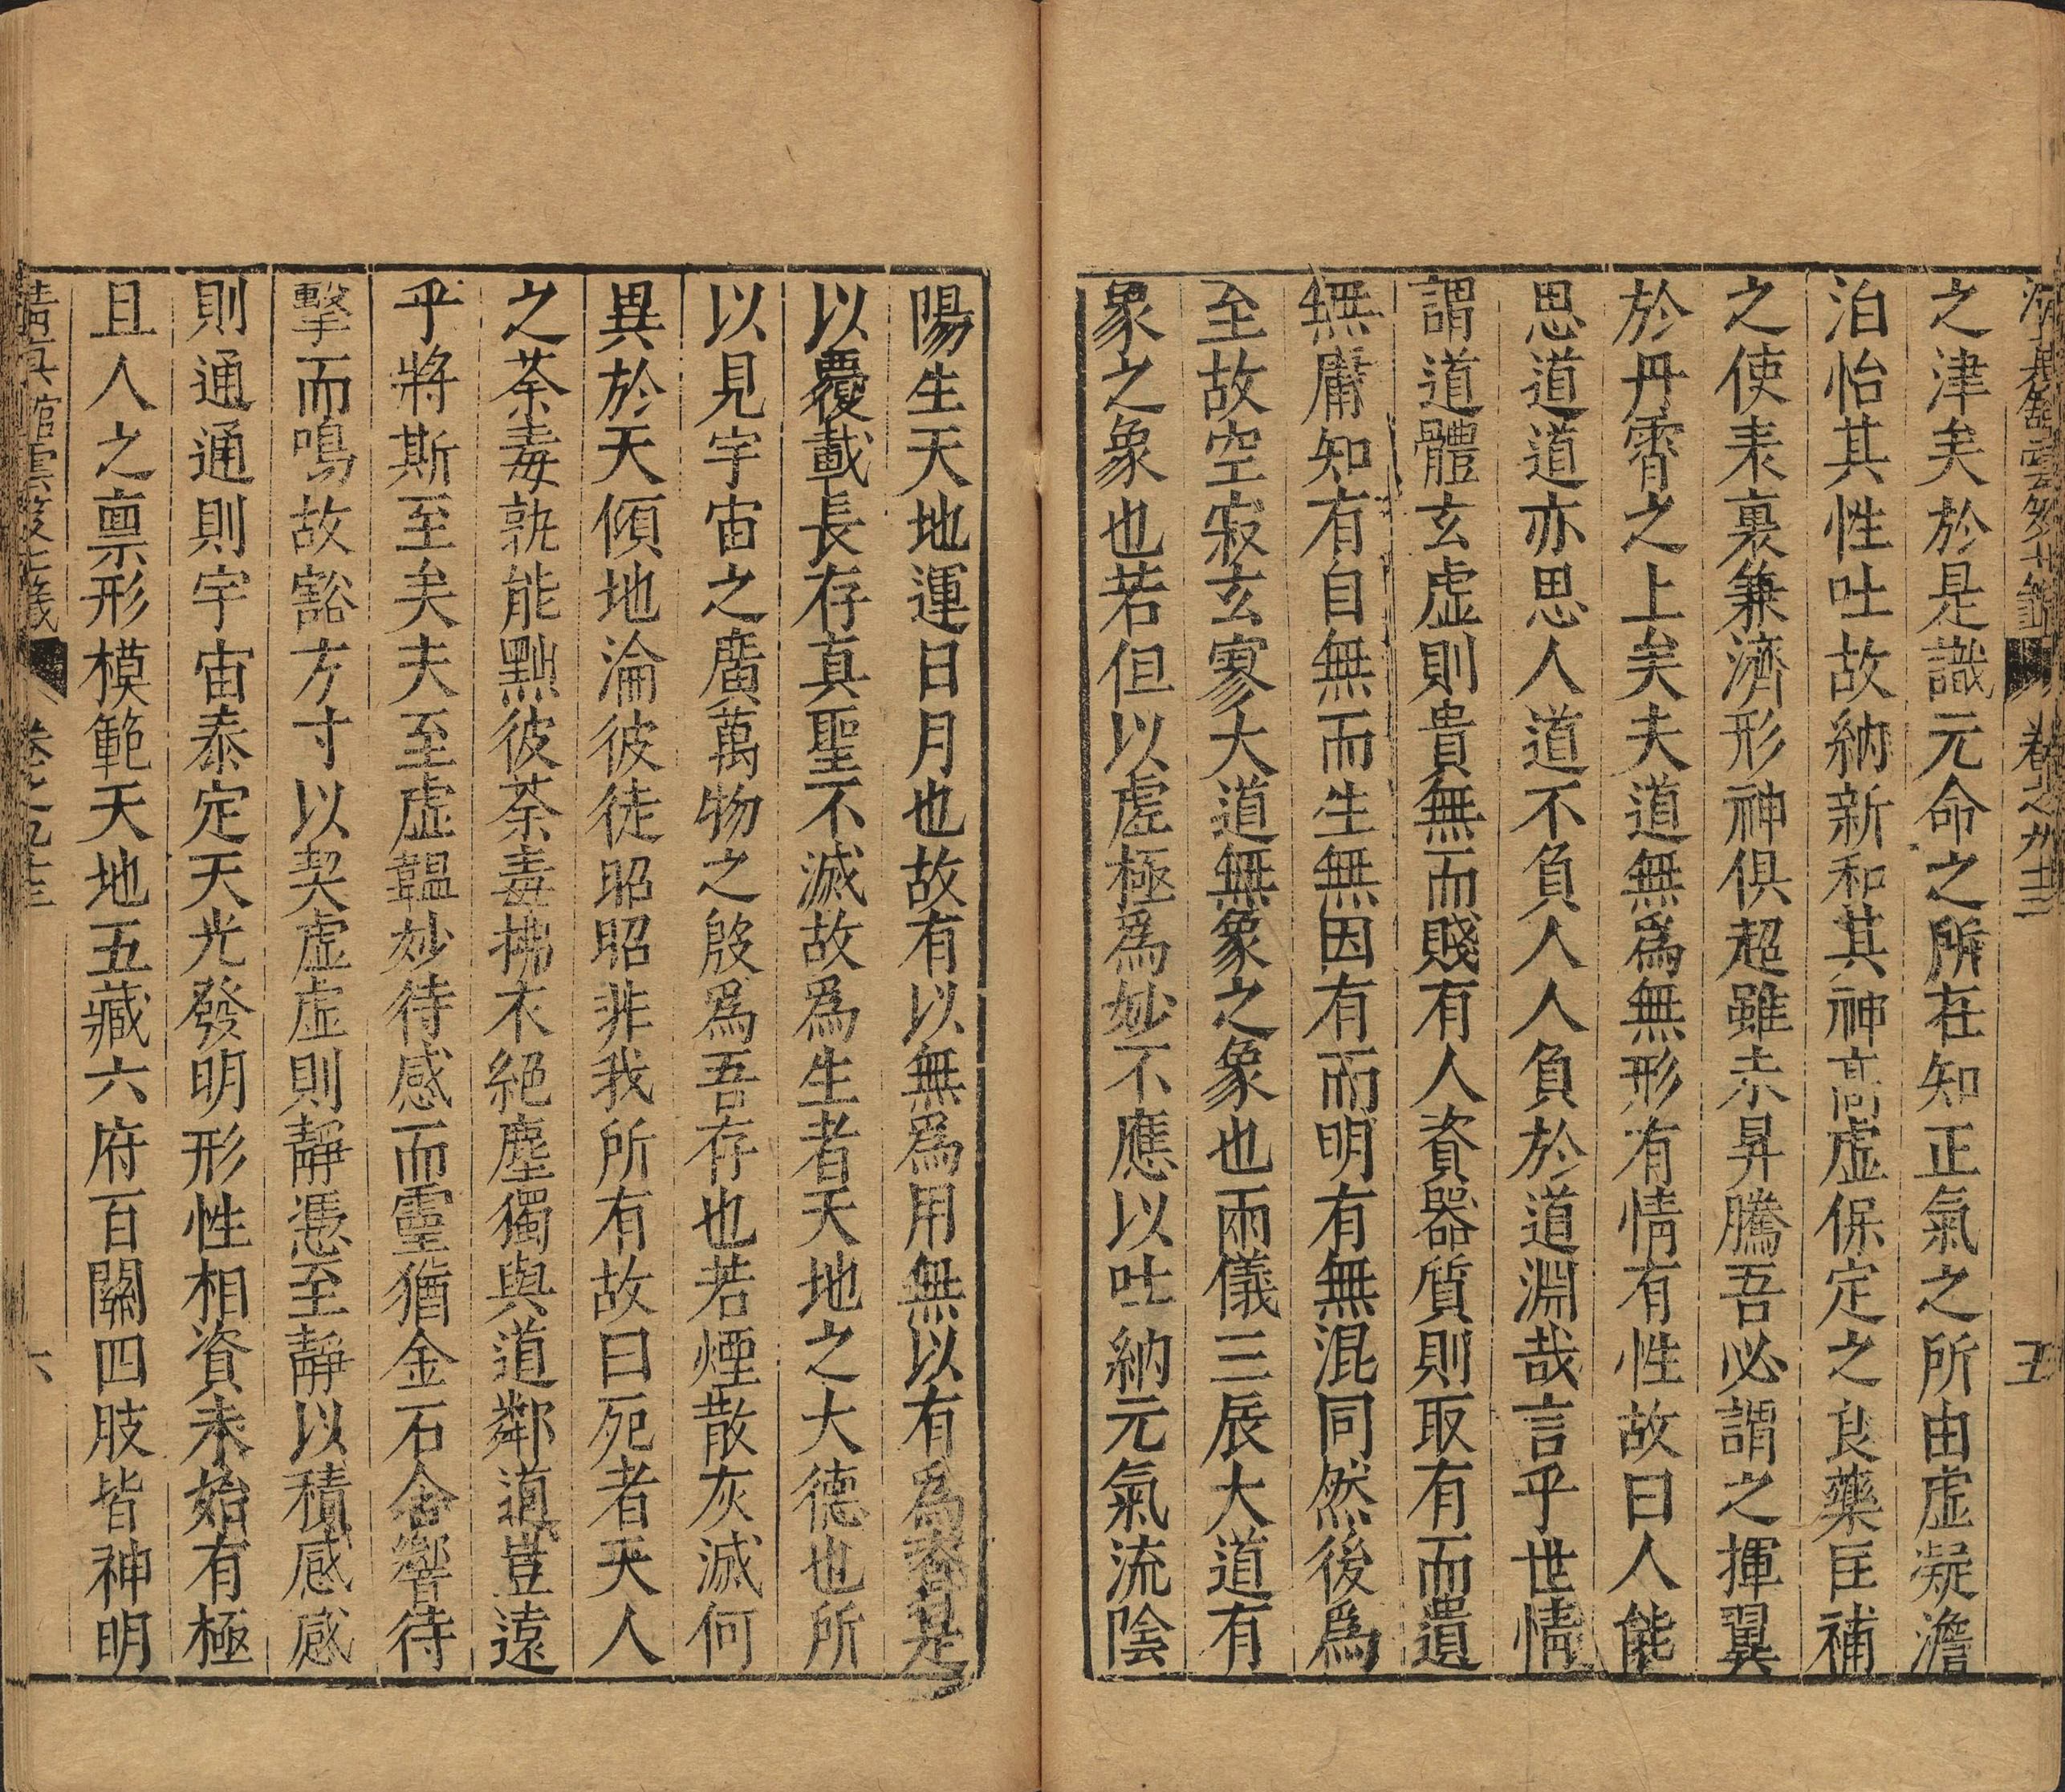 之津矣於是識元命之所在知正氣之所由虛凝澹
泊怡其性吐故納新和其神高虛保定之良藥匡補
之使表裏兼濟形神俱超雖未昇騰吾必謂之揮翼
於丹霄之上矣夫道無爲無形有情有性故曰人能
思道道亦思人道不負人人負於道淵哉言乎世情
謂道體玄虛則貴無而賤有人資器質則取有而遺
無庸知有自無而生無因有而明有無混同然後爲
至故空寂玄寥大道無象之象也兩儀三辰大道有
象之象也若但以虛極爲妙不應以吐納元氣流陰
陽生天地運日月也故有以無爲用無以有爲資是
以覆載長存真聖不滅故爲生者天地之大德也所
以見宇宙之廣萬物之殷爲吾存也若煙散灰滅何
異於天傾地淪彼徒昭昭非我所有故曰死者天人
之荼毒孰能黜彼荼毒拂衣絕塵獨與道鄰道豈遠
乎將斯至矣夫至虛韞妙待感而靈猶金石含響待
擊而鳴故豁方寸以契虛虛則靜憑至靜以積感感
則通通則宇宙泰定天光發明形性相資未始有極
且人之稟形模範天地五藏六府百關四肢皆神明
清真館雲笈七籤 卷之九十三 六